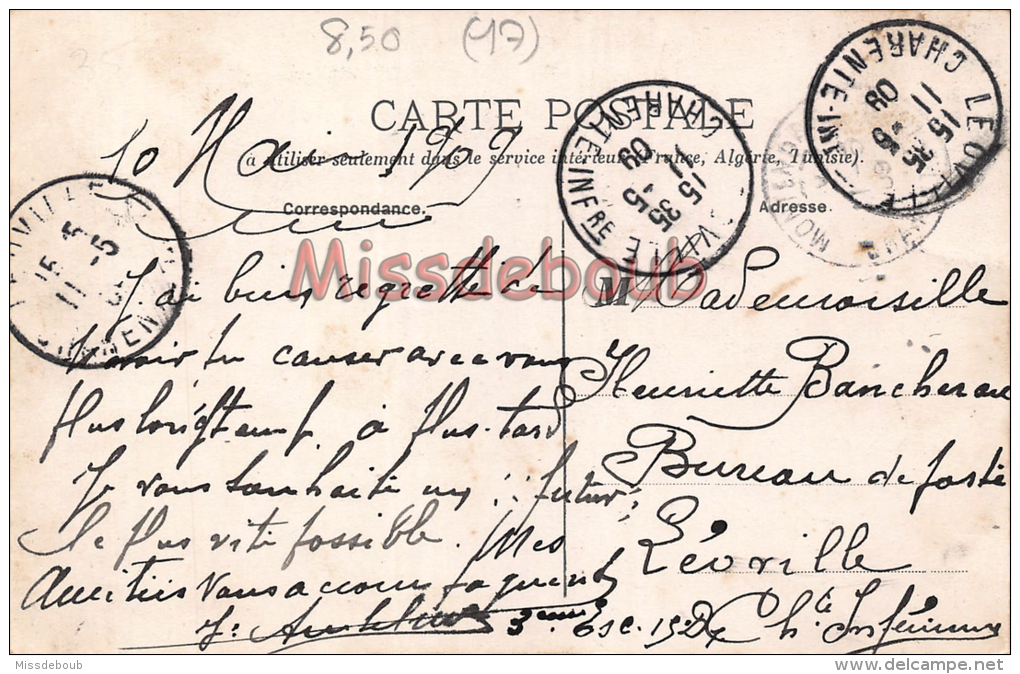 8,50 (17)
CARTE POSTALE
10 Mai 1909
(à utiliser seulement dans le service intérieur (France, Algérie, Tunisie).
Correspondance.
Adresse.
Missdeboub
J'ai bien regretté de
n'avoir pu causer avec vous
plus longtemp à plus tard
Je vous souhaite un :: futur ::
le plus vite possible. Mes
Amitiés Vous accompagnent
3eme Esc. 15e
M Mademoiselle
Henriette Banchereau
Bureau de poste
Léoville
Chte Inférieure
LEOVILLE
CHARENTE-INFRE
11 15
15 -5
09
LEOVILLE
CHARENTE INFRE
11 15
15 -5
09
Missdeboub
delcampe.net